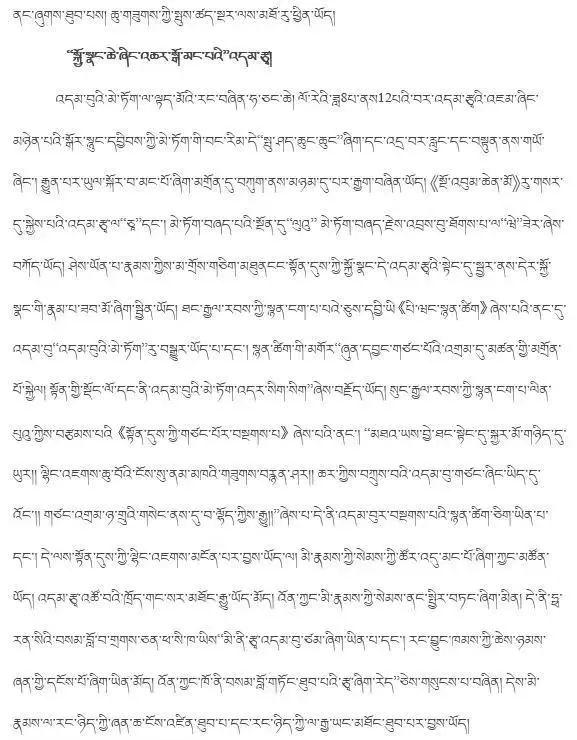 ནང་ཞུགས་ཐུབ་པས། ཆུ་གཟུགས་ཀྱི་སྤུས་ཚད་སྔར་ལས་མཐོ་རུ་ཕྱིན་ཡོད།
“སྐྱོ་སྣང་ཆེ་ཞིང་འཆར་སྒོ་མང་པའི”འདམ་རྩྭ།
འདམ་བུའི་མེ་ཏོག་ལ་ལྟད་མོའི་རང་བཞིན་ཧ་ཅང་ཆེ། ལོ་རེའི་ཟླ8པ་ནས12པའི་བར་འདམ་རྩྭའི་འཇམ་ཞིང་
མཉེན་པའི་སྒོར་སྙུང་དབྱིབས་ཀྱི་མེ་ཏོག་གི་བང་རིམ་དེ“སྤུ་ཤད་ཆུང་ཆུང”ཞིག་དང་འདྲ་བར་རླུང་དང་བསྟུན་ནས་གཡོ་
ཞིང་། རྒྱུན་པར་ཡུལ་སྐོར་བ་མང་པོ་ཞིག་མགྲོན་དུ་བཀུག་ནས་མཉམ་དུ་པར་རྒྱག་བཞིན་ཡོད། 《སྔོ་འབུམ་ཆེན་མོ》རུ་གསར་
དུ་སྐྱེས་པའི་འདམ་རྩྭ་ལ“ཅྭ”དང་། མེ་ཏོག་བཞད་པའི་སྔོན་དུ“ལུའུ” མེ་ཏོག་བཞད་རྗེས་འབྲས་བུ་ཐོགས་པ་ལ“ཝེ”ཟེར་ཞེས་
བཀོད་ཡོད། ཤེས་ཡོན་པ་རྣམས་ཀྱིས་མ་གྲོས་གཅིག་མཐུནངང་སྟོན་དུས་ཀྱི་སྐྱོ་སྣང་དེ་འདམ་རྩྭའི་སྟེང་དུ་སྦྱར་ནས་དེར་སྐྱོ་
སྣང་གི་རྣམ་པ་ཟབ་མོ་ཞིག་སྦྱིན་ཡོད། ཐང་རྒྱལ་རབས་ཀྱི་སྙན་ངག་པ་པའེ་ཅུས་དབྱི་ཡི《པི་ཝང་སྙན་ཚིག》ཞེས་པའི་ནང་དུ་
འདམ་བུ“འདམ་བུའི་མེ་ཏོག”རུ་བསྒྱུར་ཡོད་པ་དང་། སྙན་ཚིག་གི་མགོར“ཞུན་དབྱང་གཙང་པོའི་འགྲམ་དུ་མཚན་གྱི་མགྲོན་
པོ་སྐྱེལ། སྟོན་གྱི་སྡོང་ལོ་དང་ནི་འདམ་བུའི་མེ་ཏོག་འདར་སིག་སིག”ཞེས་བརྗོད་ཡོད། སུང་རྒྱལ་རབས་ཀྱི་སྙན་ངག་པ་ལིན་
པུའུ་ཀྱིས་བརྩམས་པའི 《སྟོན་དུས་ཀྱི་གཙང་པོར་བསྔགས་པ》 ཞེས་པའི་ནང་། “མཐའ་ཡས་བྱེ་ཐང་སྟེང་དུ་སྐྱར་མོ་གཉིད་དུ་
ཡུར།། ལྷིང་འཇགས་ཆུ་བོའི་ངོས་སུ་ནམ་མཁའི་གཟུགས་བརྙན་ཤར།། ཆར་གྱིས་བཀྲུས་བའི་འདམ་བུ་གཙང་ཞིང་ཡིད་དུ་
འོང་།། གཙང་འགྲམ་ཉ་གྲུའི་གསེང་ནས་དུ་བ་ལྷོད་ཀྱིས་རྒྱུ།།”ཞེས་པ་དེ་ནི་འདམ་བུར་བསྔགས་པའི་སྙན་ཚིག་ཅིག་ཡིན་པ་
དང་། དེ་ལས་སྟོན་དུས་ཀྱི་ལྷིང་འཇགས་མངོན་པར་བྱས་ཡོད་ལ། མི་རྣམས་ཀྱི་སེམས་ཀྱི་ཚོར་འདུ་མང་པོ་ཞིག་ཀྱང་མཚོན་
ཡོད། འདམ་རྩྭ་འཚོ་བའི་ཁྲོད་གང་སར་མཐོང་རྒྱུ་ཡོད་མོད། འོན་ཀྱང་མི་རྣམས་ཀྱི་སེམས་ནང་སྤྱིར་བཏང་ཞིག་མིན། དེ་ནི་ཧྥ་
རན་སིའི་བསམ་བློ་བ་གྲགས་ཅན་ཕ་སི་ཁ་ཡིས“མི་ནི་རྩྭ་འདམ་བུ་ཙམ་ཞིག་ཡིན་པ་དང་། རང་བྱུང་ཁམས་ཀྱི་ཆེས་ཉམས་
ཞན་གྱི་དངོས་པོ་ཞིག་ཡིན་མོད། འོན་ཀྱང་ཁོ་ནི་བསམ་བློ་གཏོང་ཐུབ་པའི་རྩྭ་ཞིག་རེད”ཅེས་གསུངས་པ་བཞིན། དེས་མི་
རྣམས་ལ་རང་ཉིད་ཀྱི་ཞན་ཆ་ངོས་འཛིན་ཐུབ་པ་དང་རང་ཉིད་ཀྱི་ལ་རྒྱ་ཡང་མཐོང་ཐུབ་པར་བྱས་ཡོད།